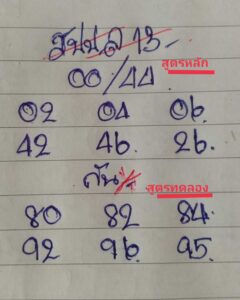 ฮานอย 13-
สูตรหลัก
00/44
02 04 06
42 46 26
กัน
สูตรทดลอง
80 82 84
92 96 95